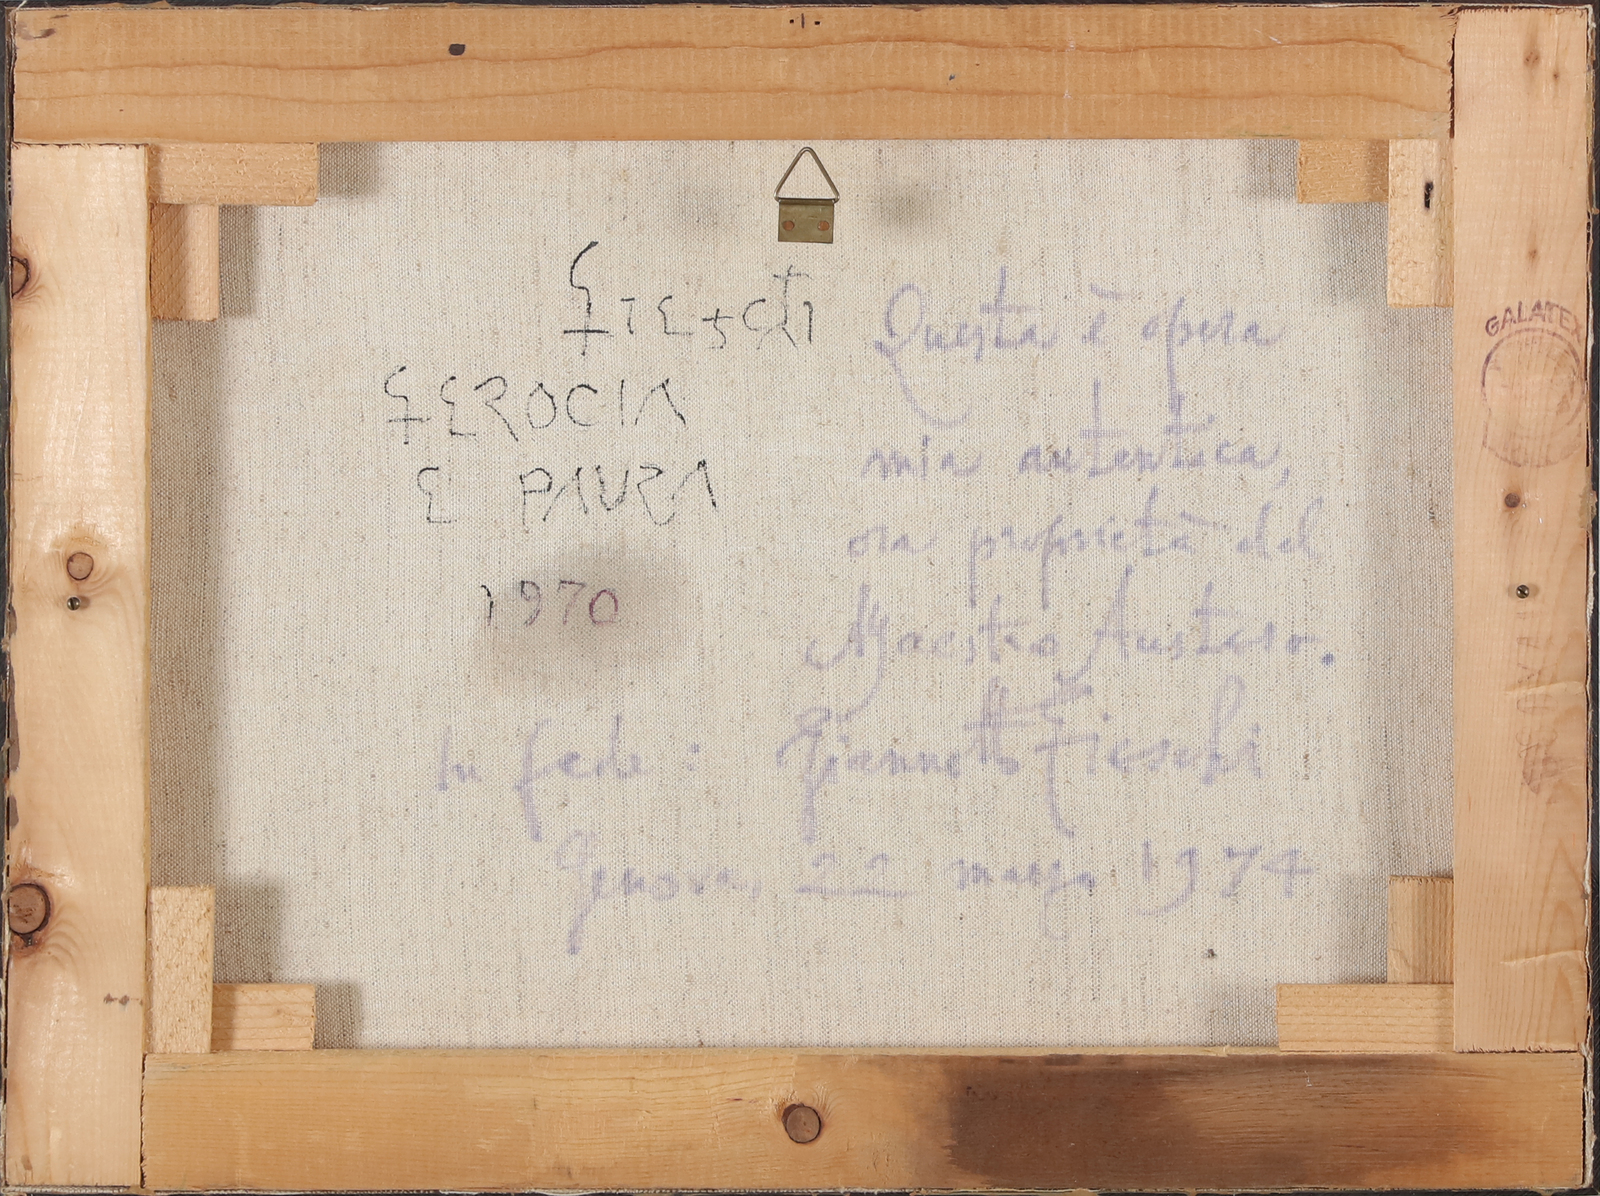 Fieschi
FEROCIA
E PAURA
1970
Questa è opera
mia autentica,
ora proprietà del
Maestro Austero.
In fede: Giannetto Fieschi
Genova, 22 marzo 1974
GALATEX